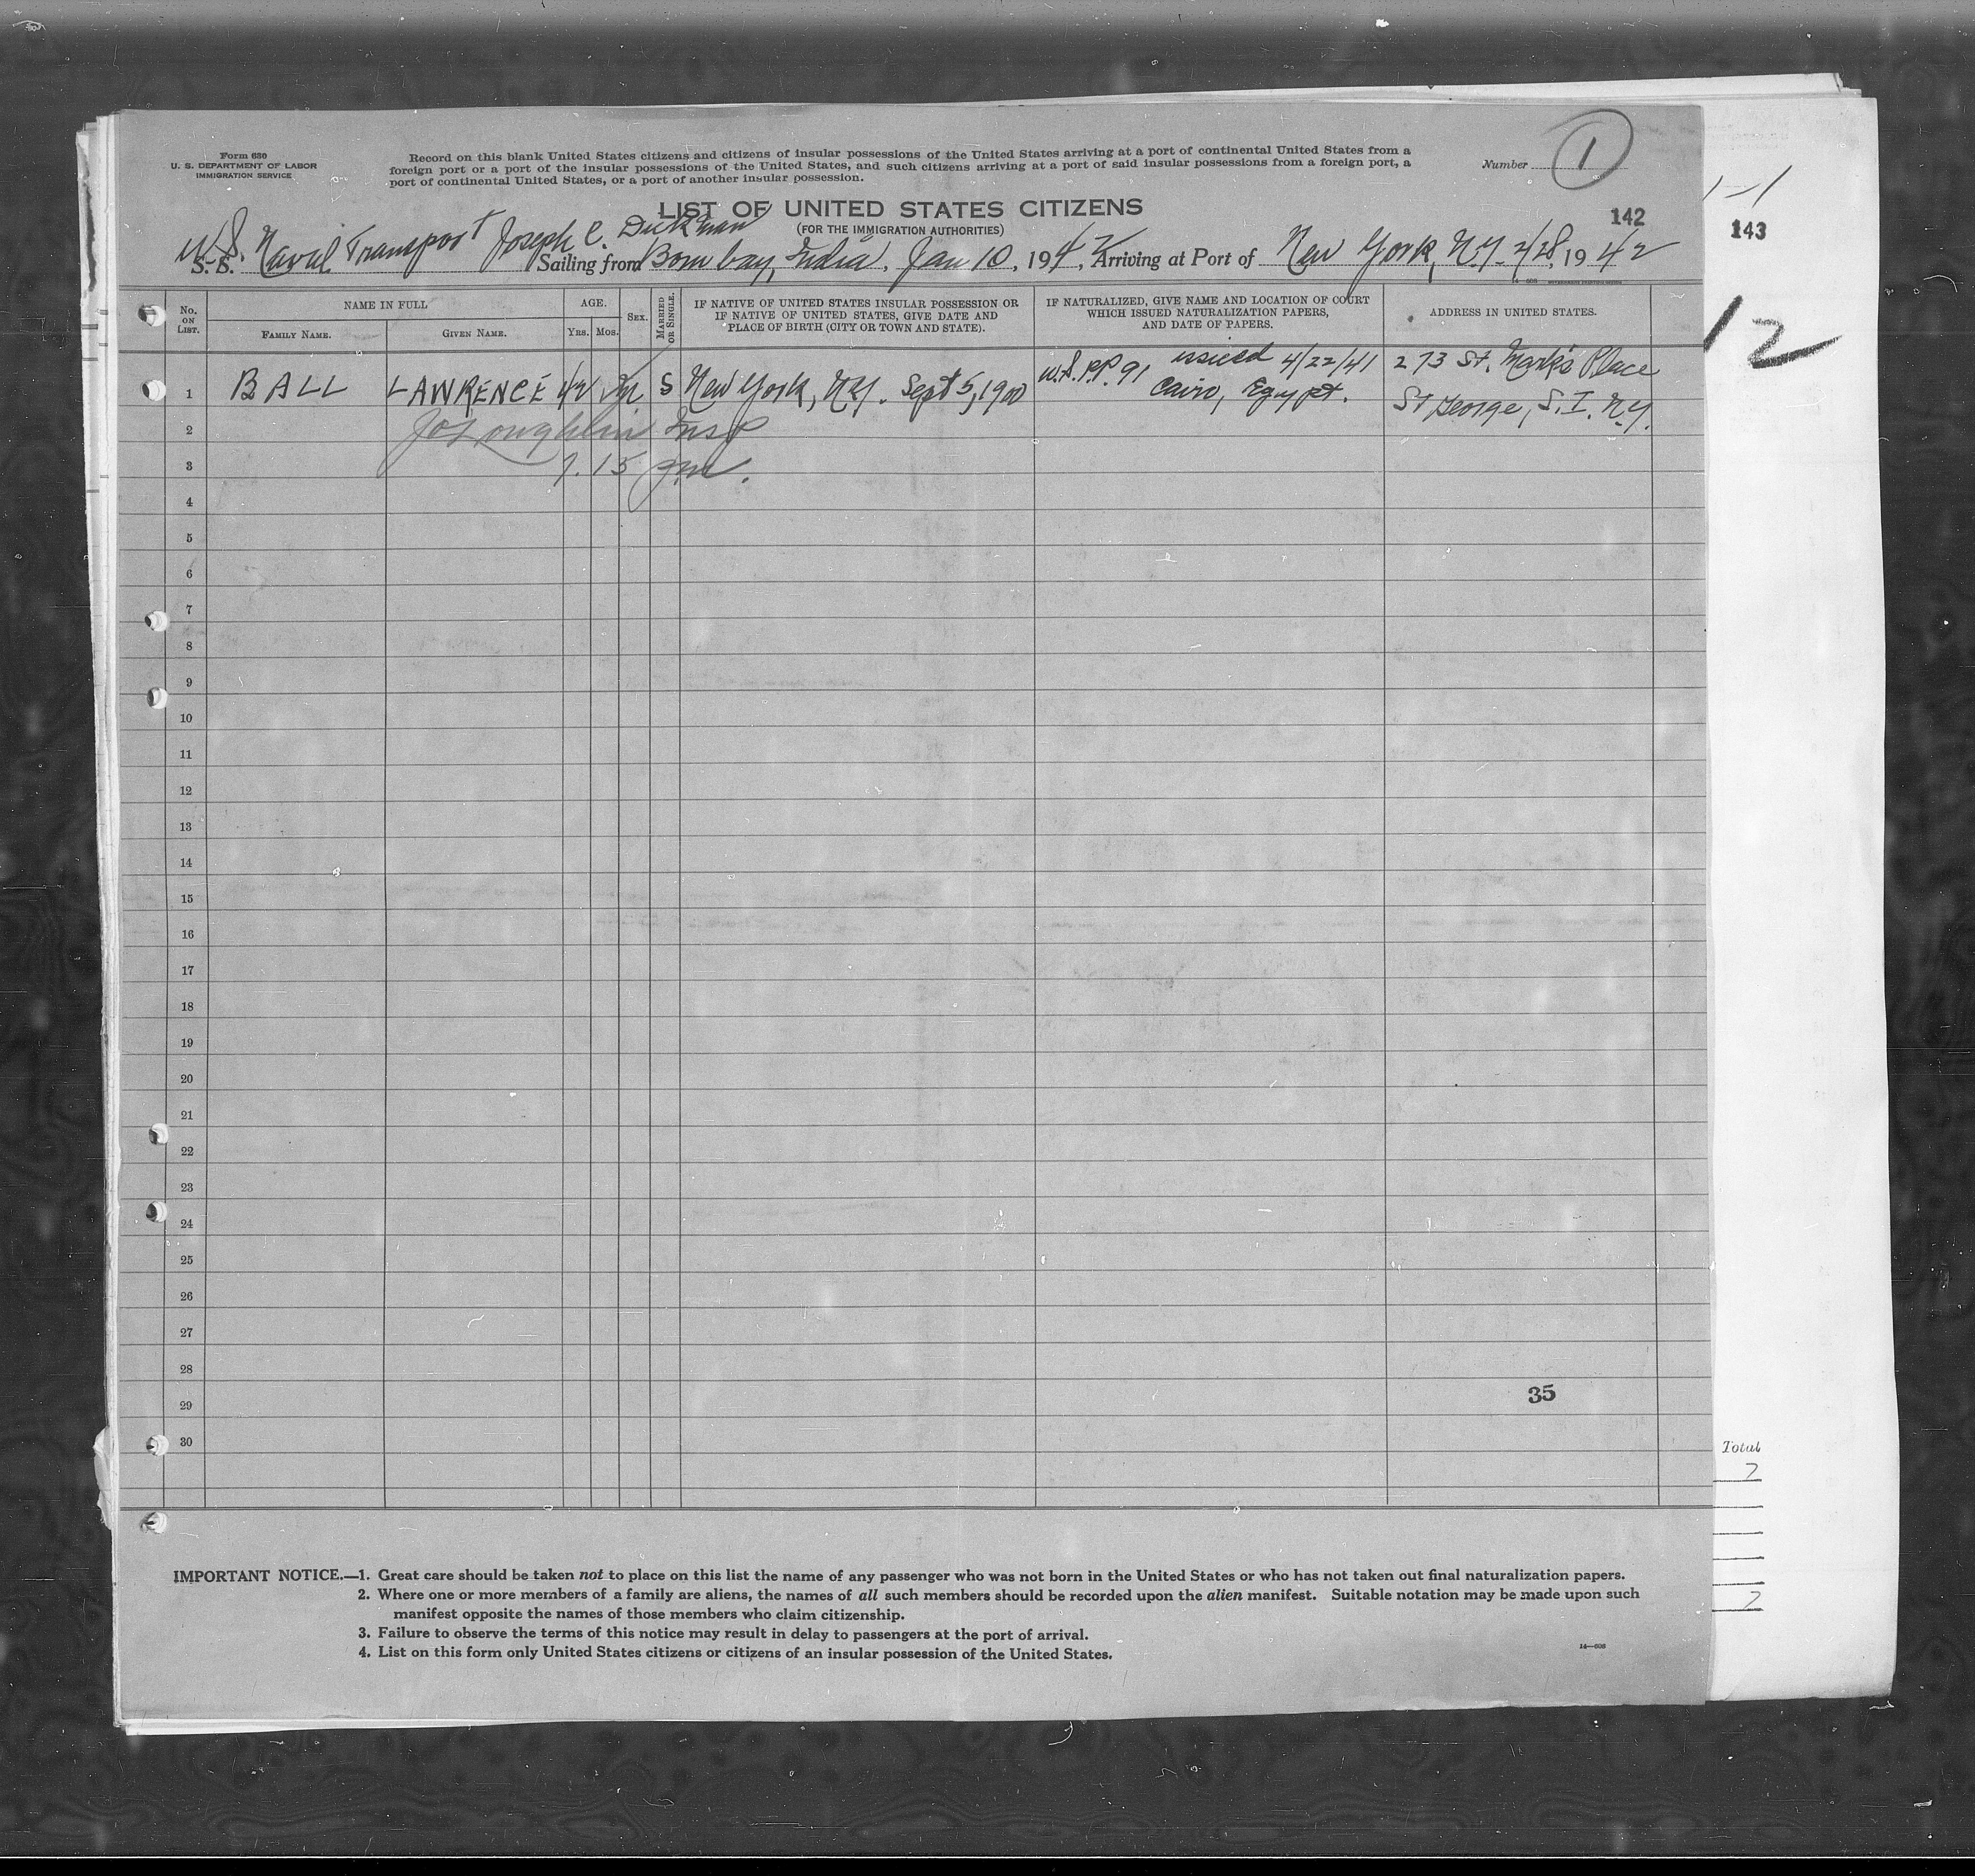 Form 630
U. S. DEPARTMENT OF LABOR
IMMIGRATION SERVICE
Record on this blank United States citizens and citizens of insular possessions of the United States arriving at a port of continental United States from a
foreign port or a port of the insular possessions of the United States, and such citizens arriving at a port of said insular possessions from a foreign port, a
port of continental United States, or a port of another insular possession.
Number 1
LIST OF UNITED STATES CITIZENS
(FOR THE IMMIGRATION AUTHORITIES)
142
143
1-1
12
U.S. Naval Transport Joseph C. Dickman
S. S. Sailing from Bombay, India, Jan 10, 1942, Arriving at Port of New York, N.Y. 2/28, 1942
No. ON LIST.
NAME IN FULL
FAMILY NAME.
GIVEN NAME.
AGE.
YRS. MOS.
SEX.
MARRIED OR SINGLE.
IF NATIVE OF UNITED STATES INSULAR POSSESSION OR
IF NATIVE OF UNITED STATES, GIVE DATE AND
PLACE OF BIRTH (CITY OR TOWN AND STATE).
IF NATURALIZED, GIVE NAME AND LOCATION OF COURT
WHICH ISSUED NATURALIZATION PAPERS,
AND DATE OF PAPERS.
ADDRESS IN UNITED STATES.
1 BALL LAWRENCE 42 M S New York, N.Y. Sept 5, 1900 U.S. P.P. 91 issued 4/22/41 273 St. Mark's Place
Cairo, Egypt. St George, S. I. N.Y.
2 Insp
3 1.15 pm.
4
5
6
7
8
9
10
11
12
13
14
15
16
17
18
19
20
21
22
23
24
25
26
27
28
29 35
30
Total
7
7
IMPORTANT NOTICE.—1. Great care should be taken not to place on this list the name of any passenger who was not born in the United States or who has not taken out final naturalization papers.
2. Where one or more members of a family are aliens, the names of all such members should be recorded upon the alien manifest. Suitable notation may be made upon such
manifest opposite the names of those members who claim citizenship.
3. Failure to observe the terms of this notice may result in delay to passengers at the port of arrival.
4. List on this form only United States citizens or citizens of an insular possession of the United States.
14—606